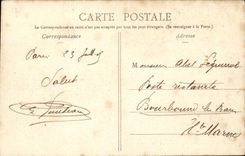 CARTE POSTALE
La Correspondance au recto n'est pas acceptée par tous les pays étrangers
(Se renseigner à la Poste.)
Correspondance
Adresse
Paris 23 Juillet
Salut
Monsieur Abel
Poste restante
Bourbonne les Bains
Hte Marne